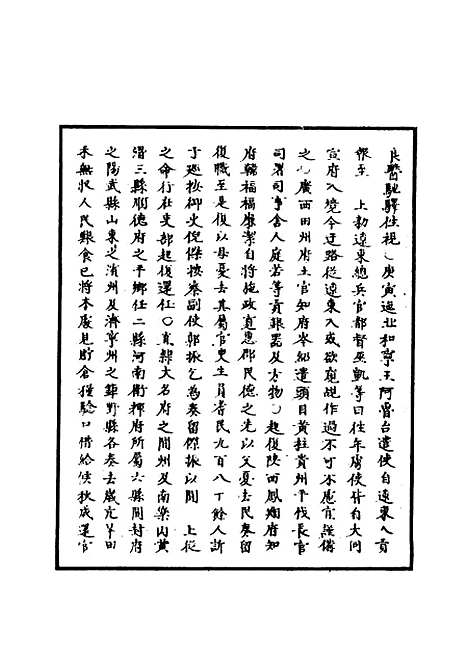 良醫馳驛往視○庚寅迤北和寧王阿魯台遣使自遼東入貢
報至　上勑遼東總兵官都督巫凱等曰往年虜使皆自大同
宣府入境今迂路從遼東入或欲窺覘作過不可不慮宜謹備
之○廣西田州府土官知府岑紹遣頭目黃拄貴州平伐長官
司署司事舍人庭若等貢銀器及方物○起復陝西鳳翔府知
府韓福福廉潔自將施政寬惠郡民德之先以父憂去民奏留
復職至是復以母憂去其屬官吏生員耆民九百八十餘人訴
于巡按御史倪傑按察副使郭振乞為奏留傑振以聞　上從
之命行在吏部起復還任○直隸大名府之開州及南樂內黃
滑三縣順德府之平鄉任二縣河南衛輝府所屬六縣開封府
之陽武縣山東之濱州及濟寧州之鉅野縣各奏去歲亢旱田
禾無收人民艱食已將本處見貯倉糧驗口借給俟秋成還官